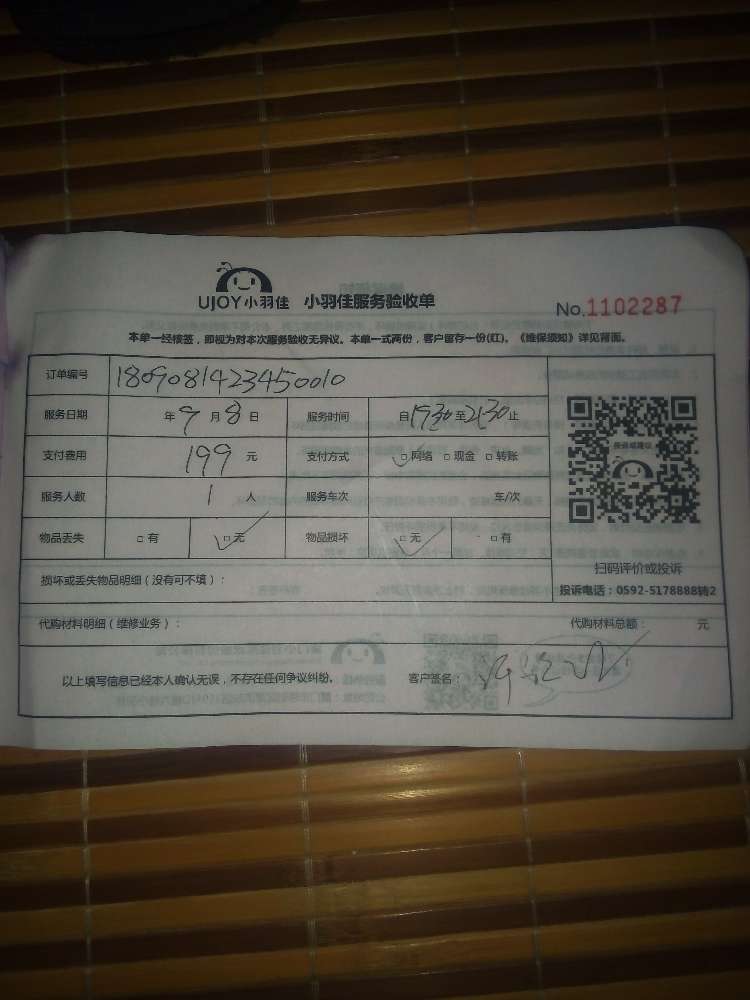 UJOY小羽佳 小羽佳服务验收单 No.1102287
本单一经核签,即视为对本次服务验收无异议。本单一式两份,客户留存一份(红)。《维保须知》详见背面。
订单编号 1809081423450010
服务日期 年9月8日 服务时间 自1930至2130止
支付费用 199元 支付方式 □网络 □现金 □转账
投诉或建议
服务人数 1人 服务车次 车/次
物品丢失 □有 □无 物品损坏 □无 □有
扫码评价或投诉
损坏或丢失物品明细(没有可不填):
投诉电话:0592-5178888转2
代购材料明细(维修业务): 代购材料总额: 元
以上填写信息已经本人确认无误,不存在任何争议纠纷。 客户签名: